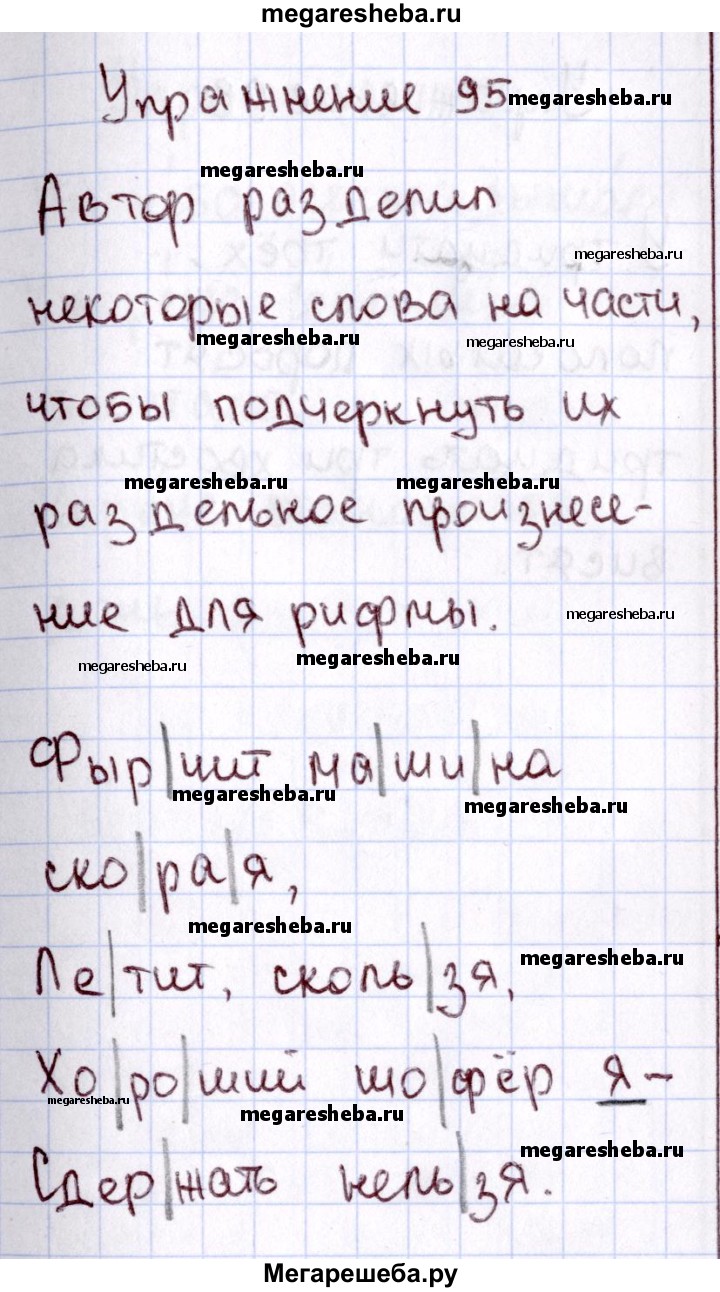 megaresheba.ru
Упражнение 95 megaresheba.ru
megaresheba.ru
Автор разделил
megaresheba.ru
некоторые слова на части,
megaresheba.ru megaresheba.ru
чтобы подчеркнуть их
megaresheba.ru megaresheba.ru
раздельное произнесе-
ние для рифмы. megaresheba.ru
megaresheba.ru megaresheba.ru
Фыр|чит ма|ши|на
megaresheba.ru megaresheba.ru
ско|ра|я,
megaresheba.ru
Ле|тит, сколь|зя, megaresheba.ru
Хо|ро|ший шо|фёр я –
megaresheba.ru megaresheba.ru
Сдер|жать нель|зя. megaresheba.ru
Мегарешеба.ру